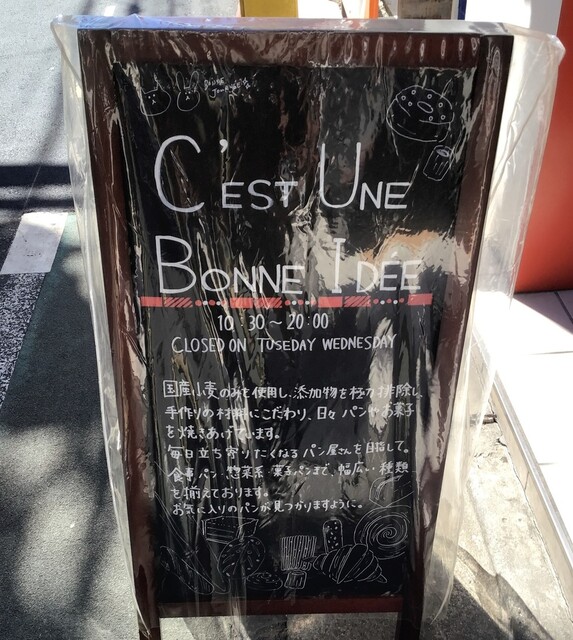 C'EST UNE
BONNE IDÉE
10:30~20:00
CLOSED ON TUSEDAY WEDNESDAY
国産小麦のみを使用し、添加物を極力排除し、
手作りの材料にこだわり、日々パンやお菓子
を焼きあげています。
毎日立ち寄りたくなるパン屋さんを目指して。
食事パン、惣菜系、菓子パンまで、幅広い種類
を揃えております。
お気に入りのパンが見つかりますように。